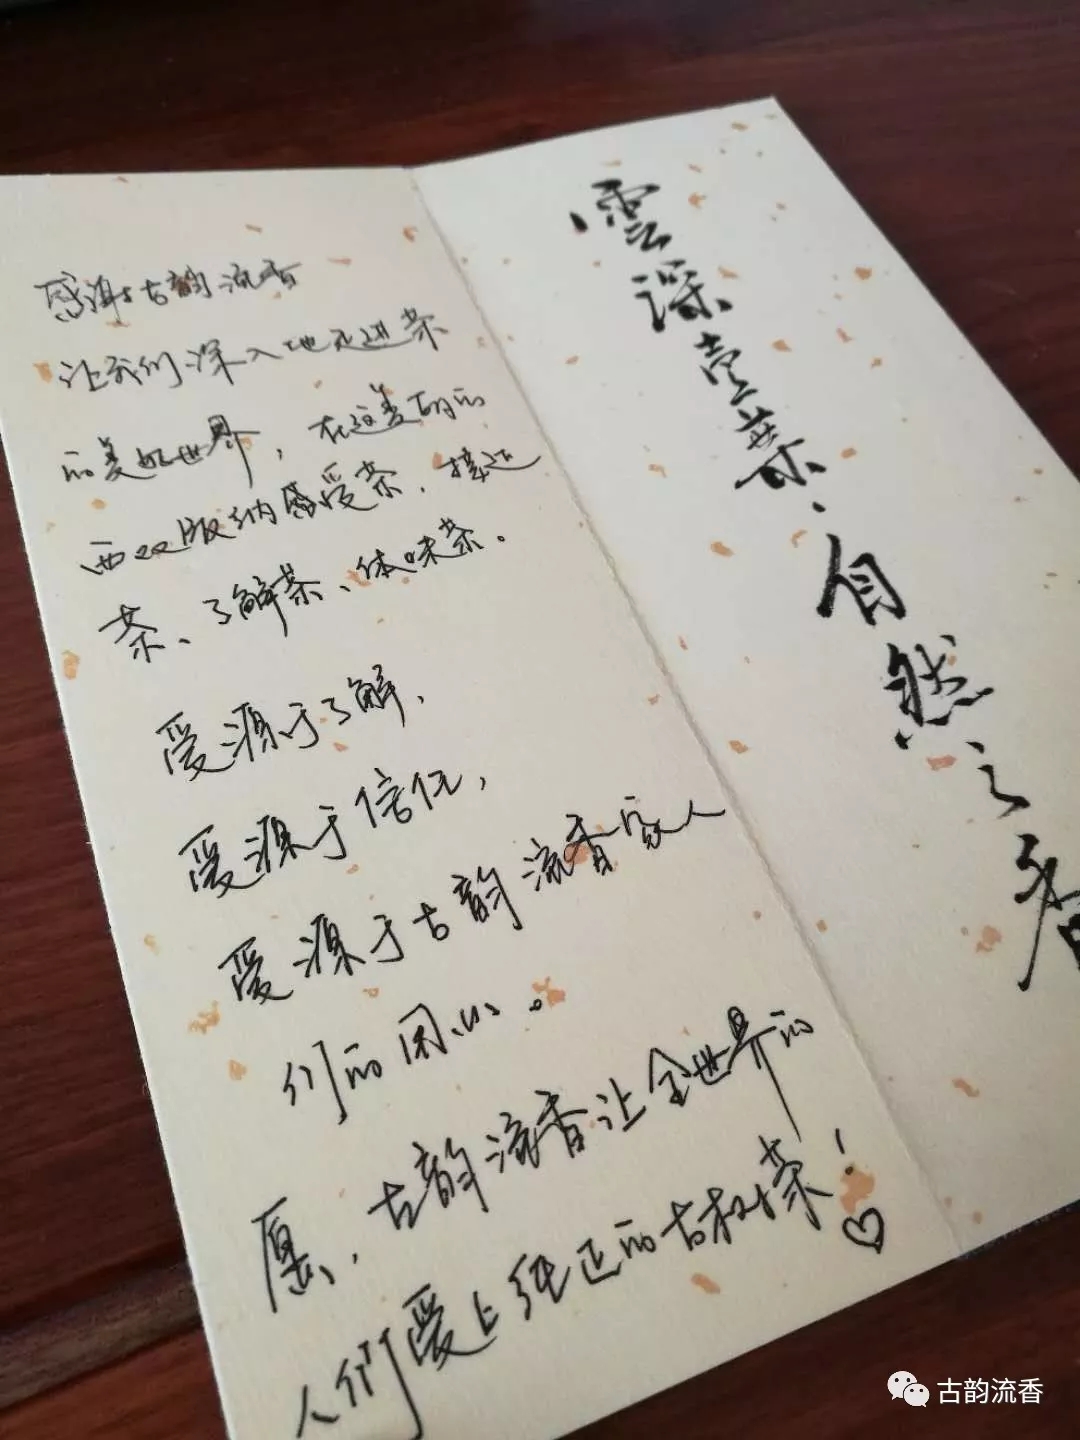 感谢古韵流香
让我们深入地走进茶
的美好世界，在这美丽的
西双版纳感受茶、接近
茶、了解茶、体味茶。
爱源于了解，
爱源于信任，
爱源于古韵流香家人
们的用心。
愿，古韵流香让全世界的
人们爱上纯正的古树茶！♡
雲深老葉、自然之香
古韵流香